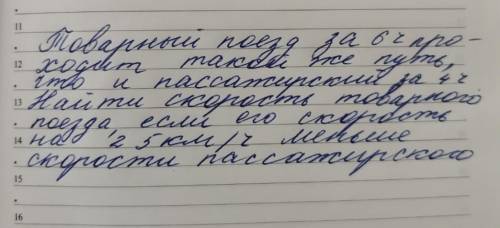 11
Товарный поезд за 6 ч про-
12 ходит такой же путь,
что и пассажирский за 4 ч
13 Найти скорость товарного
поезда, если его скорость
14 на 25 км/ч меньше
скорости пассажирского
15
16